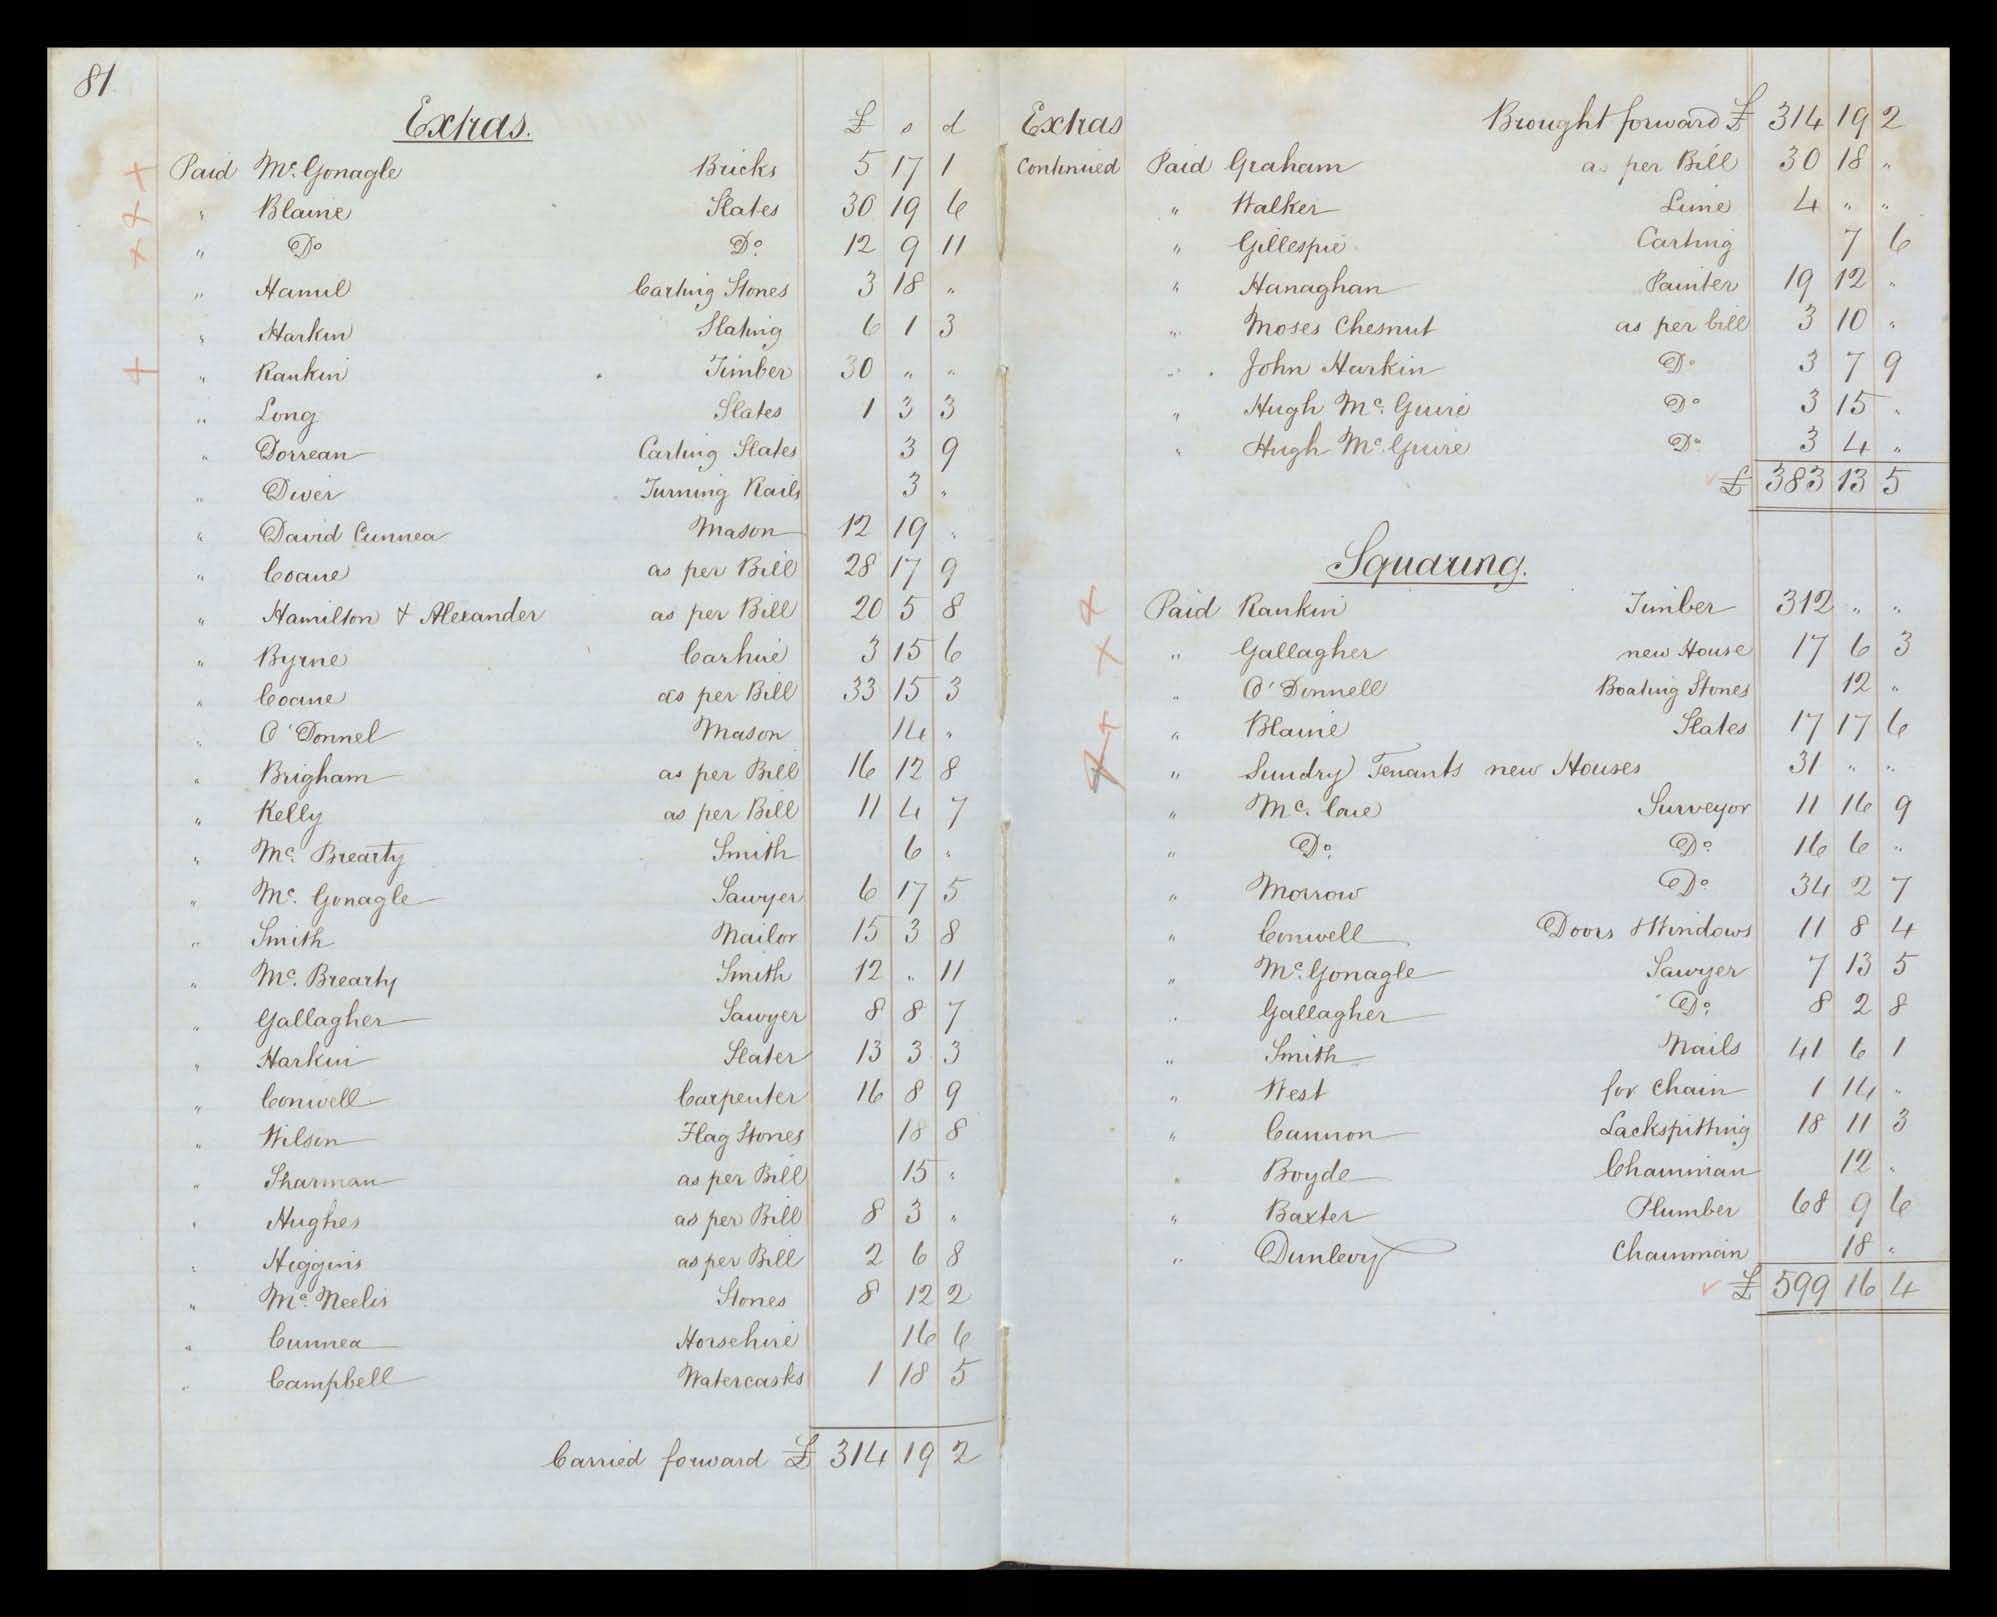 81.
Extras. £ s d
Paid Mc. Gonagle Bricks 5 17 1
" Blaine Slates 30 19 6
" Do Do. 12 9 11
" Hamil Carting Stones 3 18 "
" Harkin Slating 6 1 3
" Rankin Timber 30 " "
" Long Slates 1 3 3
" Dorrean Carting Slates 3 9
" Diver Turning Rails 3 "
" David Cunnea Mason 12 19 "
" Coane as per Bill 28 17 9
" Hamilton & Alexander as per Bill 20 5 8
" Byrne Carhire 3 15 6
" Coane as per Bill 33 15 3
" O'Donnel Mason 14 "
" Brigham as per Bill 16 12 8
" Kelly as per Bill 11 4 7
" Mc. Brearty Smith 6 "
" Mc. Gonagle Sawyer 6 17 5
" Smith Nailor 15 3 8
" Mc. Brearty Smith 12 " 11
" Gallagher Sawyer 8 8 7
" Harkin Slater 13 3 3
" Conwell Carpenter 16 8 9
" Wilson Flag Stones 18 8
" Sharman as per Bill 15 "
" Hughes as per Bill 8 3 "
" Higgins as per Bill 2 6 8
" Mc. Neelis Stones 8 12 2
" Cunnea Horsehire 16 6
" Campbell Watercasks 1 18 5
Carried forward £ 314 19 2
Extras Brought forward £ 314 19 2
Continued Paid Graham as per Bill 30 18 "
" Walker Lime 4 " "
" Gillespie Carting 7 6
" Hanaghan Painter 19 12 "
" Moses Chesnut as per bill 3 10 "
" John Harkin Do 3 7 9
" Hugh Mc. Guire Do 3 15 "
" Hugh Mc. Guire Do. 3 4 "
£ 383 13 5
Squaring.
Paid Rankin Timber 312 " "
" Gallagher new House 17 6 3
" O'Donnell Boating Stones 12 "
" Blaine Slates 17 17 6
" Sundry Tenants new Houses 31 " "
" Mc. Caie Surveyor 11 16 9
" Do. Do. 16 6 "
" Morrow Do. 34 2 7
" Conwell Doors & Windows 11 8 4
" Mc. Gonagle Sawyer 7 13 5
" Gallagher Do. 8 2 8
" Smith Nails 41 6 1
" West for Chain 1 14 "
" Cannon Lackspitting 18 11 3
" Boyde Chainman 12 "
" Baxter Plumber 68 9 6
" Dunlevy Chainman 18 "
£ 599 16 4